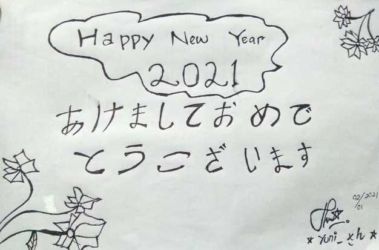 Happy New Year
2021
あけましておめで
とうございます
02/2021
/01
★ yuni_さん ★